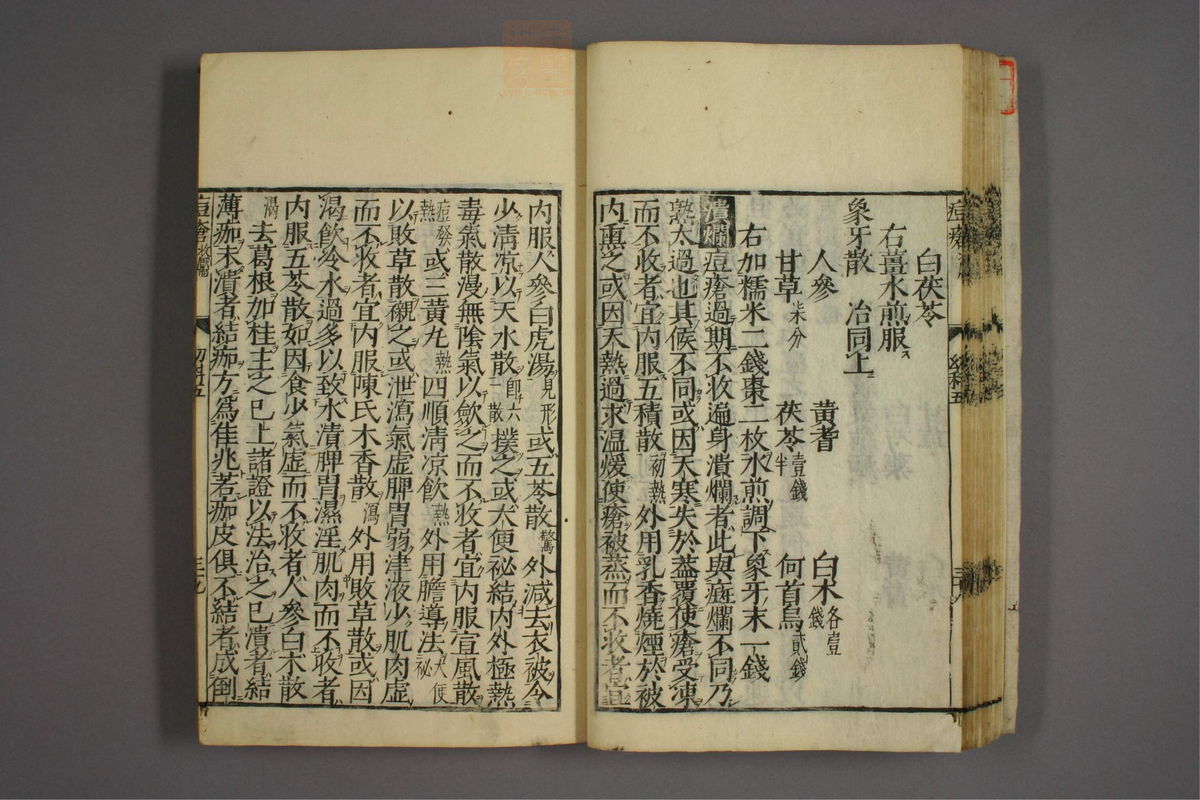 白茯苓
右薑水煎服
象牙散 冶同上
人參 黃耆 白朮各壹錢
甘草柒分 茯苓壹錢半 何首烏貳錢
右加糯米二錢棗二枚水煎調下象牙末一錢
潰爛痘瘡過期不收遍身潰爛者此與斑爛不同乃
熟太過也其候不同或因天寒失於蓋覆使瘡受凍
而不收者宜内服五積散初熱外用乳香燒煙於被
内熏之或因天熱過求温煖使瘡被蒸而不收者宜
内服人參白虎湯見形或五苓散驚外減去衣被令
少清凉以天水散即六一散撲之或大便祕結内外極熱
毒氣散漫無陰氣以斂之而不收者宜内服宣風散
痘發熱或三黃丸熱四順清凉飲熱外用膽導法大便祕
以敗草散襯之或泄瀉氣虚脾胃弱津液少肌肉虚
而不收者宜内服陳氏木香散瀉外用敗草散或因
渴飲冷水過多以致水漬脾胃濕淫肌肉而不收者
内服五苓散如因食少氣虚而不收者人參白朮散
渴去葛根加桂主之已上諸證以法治之已潰者結
薄痂未潰者結痂方爲佳兆若痂皮俱不結者成倒
痘瘡
幼科五
三九